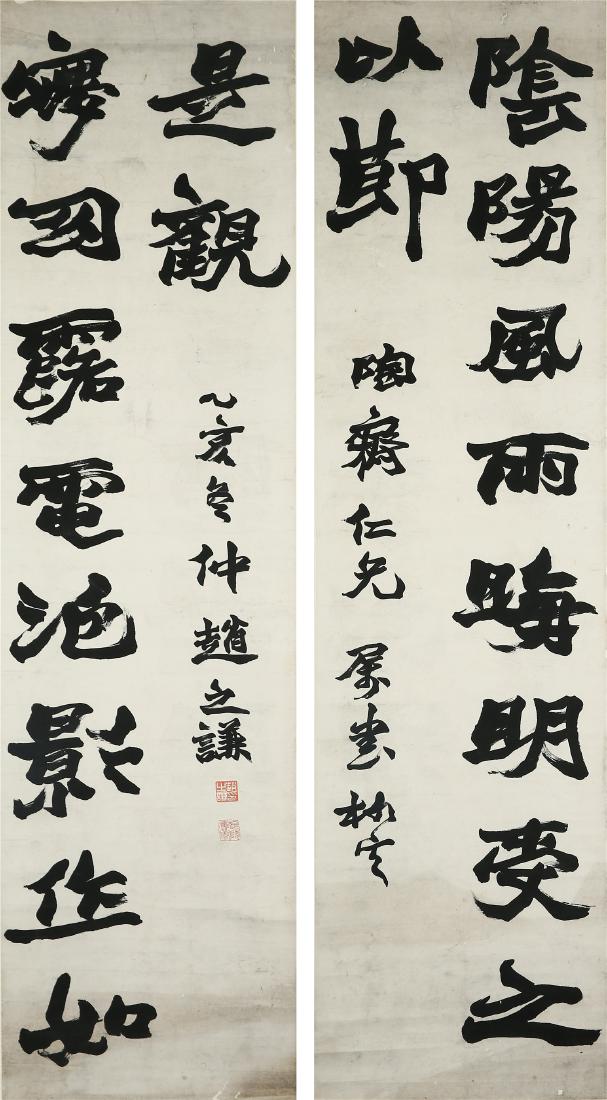 陰陽風雨晦明受之
以節
陶齋仁兄 屬書
夢幻露電泡影作如
是觀
乙亥冬仲趙之謙